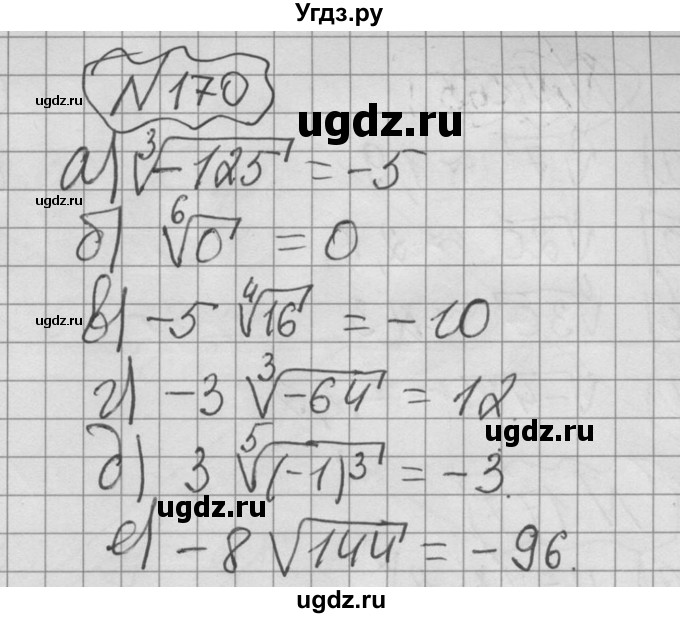 Угдз.ру
№170
ugdz.ru
ugdz.ru
а) ∛-125 = -5
ugdz.ru
б) ⁶√0 = 0
в) -5 ⁴√16 = -10
ugdz.ru
г) -3 ∛-64 = 12.
ugdz.ru
д) 3 ⁵√(-1)³ = -3.
ugdz.ru
е) -8 √144 = -96.
ugdz.ru